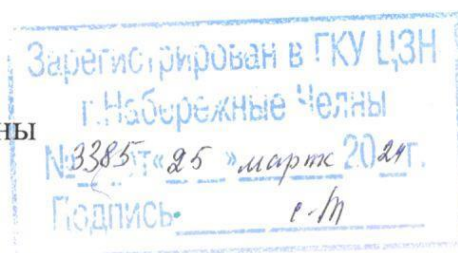 Зарегистрирован в ГКУ ЦЗН
г.Набережные Челны
ны
№ 3385 от « 25 » март 2024 г.
Подпись